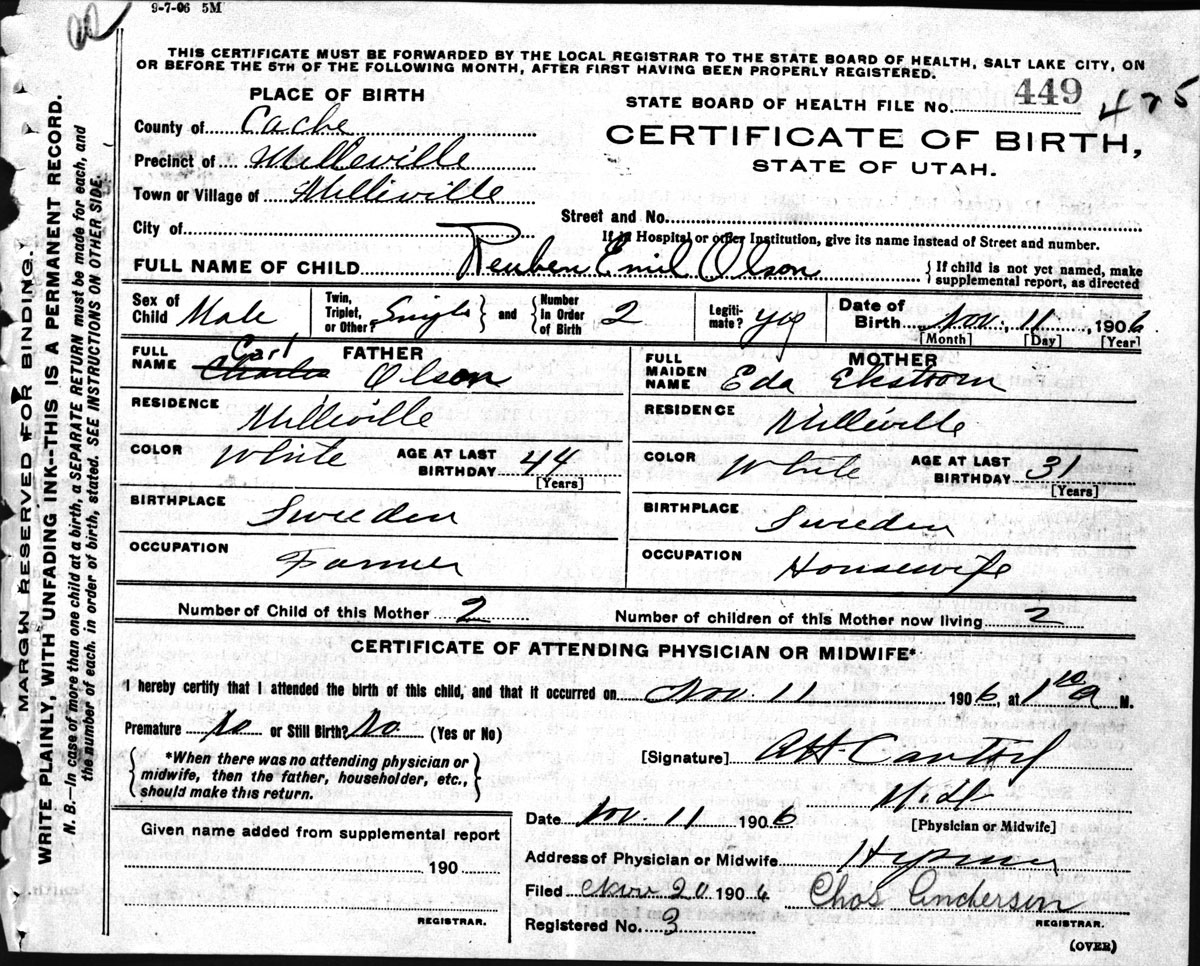 9-7-06 5M
THIS CERTIFICATE MUST BE FORWARDED BY THE LOCAL REGISTRAR TO THE STATE BOARD OF HEALTH, SALT LAKE CITY, ON
OR BEFORE THE 5TH OF THE FOLLOWING MONTH, AFTER FIRST HAVING BEEN PROPERLY REGISTERED.
PLACE OF BIRTH
STATE BOARD OF HEALTH FILE No. 449 475
County of Cache
CERTIFICATE OF BIRTH,
STATE OF UTAH.
Precinct of Milleville
Town or Village of Milleville
Street and No.
City of
If in Hospital or other Institution, give its name instead of Street and number.
FULL NAME OF CHILD Reuben Emil Olson
{ If child is not yet named, make
supplemental report, as directed
Sex of Child Male
Twin, Triplet, or Other? Single } and { Number In Order of Birth 2
Legitimate? yes
Date of Birth Nov. 11, 1906
[Month] [Day] [Year]
FATHER
FULL NAME Charles Carl Olson
RESIDENCE Milleville
COLOR White AGE AT LAST BIRTHDAY 44
[Years]
BIRTHPLACE Sweeden
OCCUPATION Farmer
MOTHER
FULL MAIDEN NAME Eda Ekstrom
RESIDENCE Milleville
COLOR White AGE AT LAST BIRTHDAY 31
[Years]
BIRTHPLACE Sweeden
OCCUPATION Housewife
Number of Child of this Mother 2 Number of children of this Mother now living 2
CERTIFICATE OF ATTENDING PHYSICIAN OR MIDWIFE*
I hereby certify that I attended the birth of this child, and that it occurred on Nov. 11 1906, at 1 10 a M.
Premature No or Still Birth? No (Yes or No)
{ *When there was no attending physician or
midwife, then the father, householder, etc.,
should make this return. }
[Signature]
Date Nov. 11 1906
[Physician or Midwife]
Address of Physician or Midwife
Filed Nov 20 1906 Chas Anderson
REGISTRAR.
Registered No. 3
(OVER)
Given name added from supplemental report
190
REGISTRAR.
MARGIN RESERVED FOR BINDING.
WRITE PLAINLY, WITH UNFADING INK--THIS IS A PERMANENT RECORD.
N. B.—In case of more than one child at a birth, a SEPARATE RETURN must be made for each, and
the number of each, in order of birth, stated. SEE INSTRUCTIONS ON OTHER SIDE.